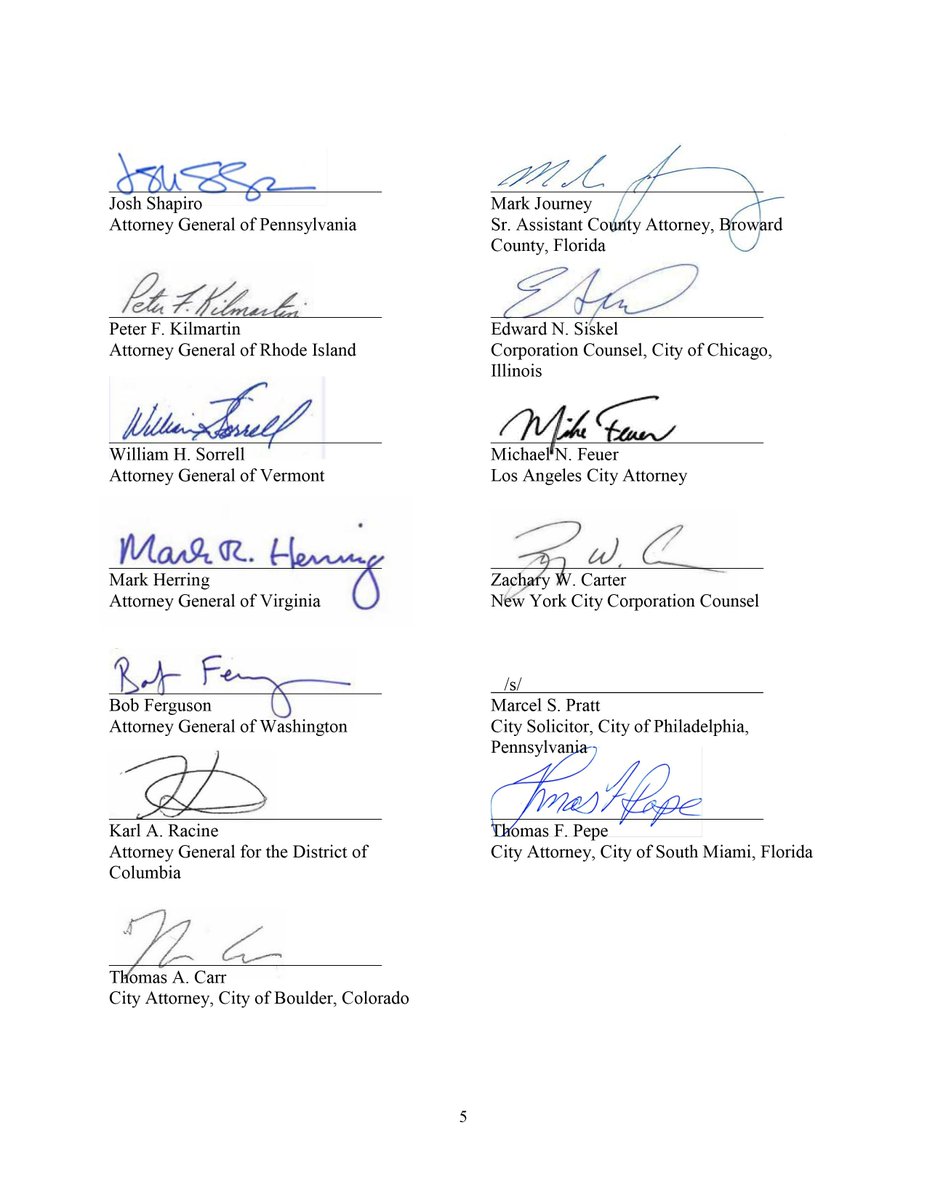 Josh Shapiro
Attorney General of Pennsylvania
Peter F. Kilmartin
Peter F. Kilmartin
Attorney General of Rhode Island
William Sorrell
William H. Sorrell
Attorney General of Vermont
Mark R. Herring
Mark Herring
Attorney General of Virginia
Bob Ferguson
Attorney General of Washington
Karl A. Racine
Attorney General for the District of
Columbia
Thomas A. Carr
City Attorney, City of Boulder, Colorado
Mark Journey
Sr. Assistant County Attorney, Broward
County, Florida
Edward N. Siskel
Corporation Counsel, City of Chicago,
Illinois
Mike Feuer
Michael N. Feuer
Los Angeles City Attorney
Zachary W. Carter
New York City Corporation Counsel
/s/
Marcel S. Pratt
City Solicitor, City of Philadelphia,
Pennsylvania
Thomas F Pepe
Thomas F. Pepe
City Attorney, City of South Miami, Florida
5